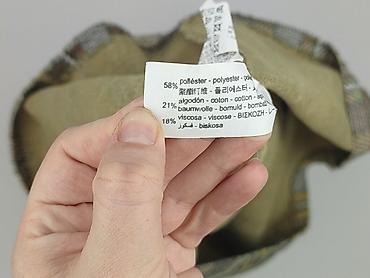 58% poliéster - polyester -
聚酯纤维 - 폴리에스터 -
algodón - coton - cotton -
21% baumwolle - bomuld -
18% viscosa - viscose - ΒΙΣΚΟΖΗ -
فسكوز - biskosa